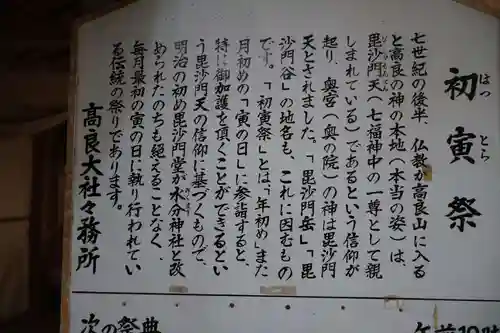 初寅祭
はつ
とら
七世紀の後半、仏教が高良山に入る
と高良の神の本地(本当の姿)は、
毘沙門天(七福神中の一尊として親
びしゃもんてん
しまれている)であるという信仰が
起り、奥宮(奥の院)の神は毘沙門
天とされました。「毘沙門岳」「毘
沙門谷」の地名も、これに因むもの
です。「初寅祭」とは「年初め」また
月初めの「寅の日」に参詣すると、
特に御加護を頂くことができるとい
う毘沙門天の信仰に基づくもので、
明治の初め毘沙門堂が水分神社と改
められたのちも絶えることなく、
毎月最初の寅の日に執り行われてい
る伝統の祭りであります。
高良大社々務所
次の祭典
午前10時